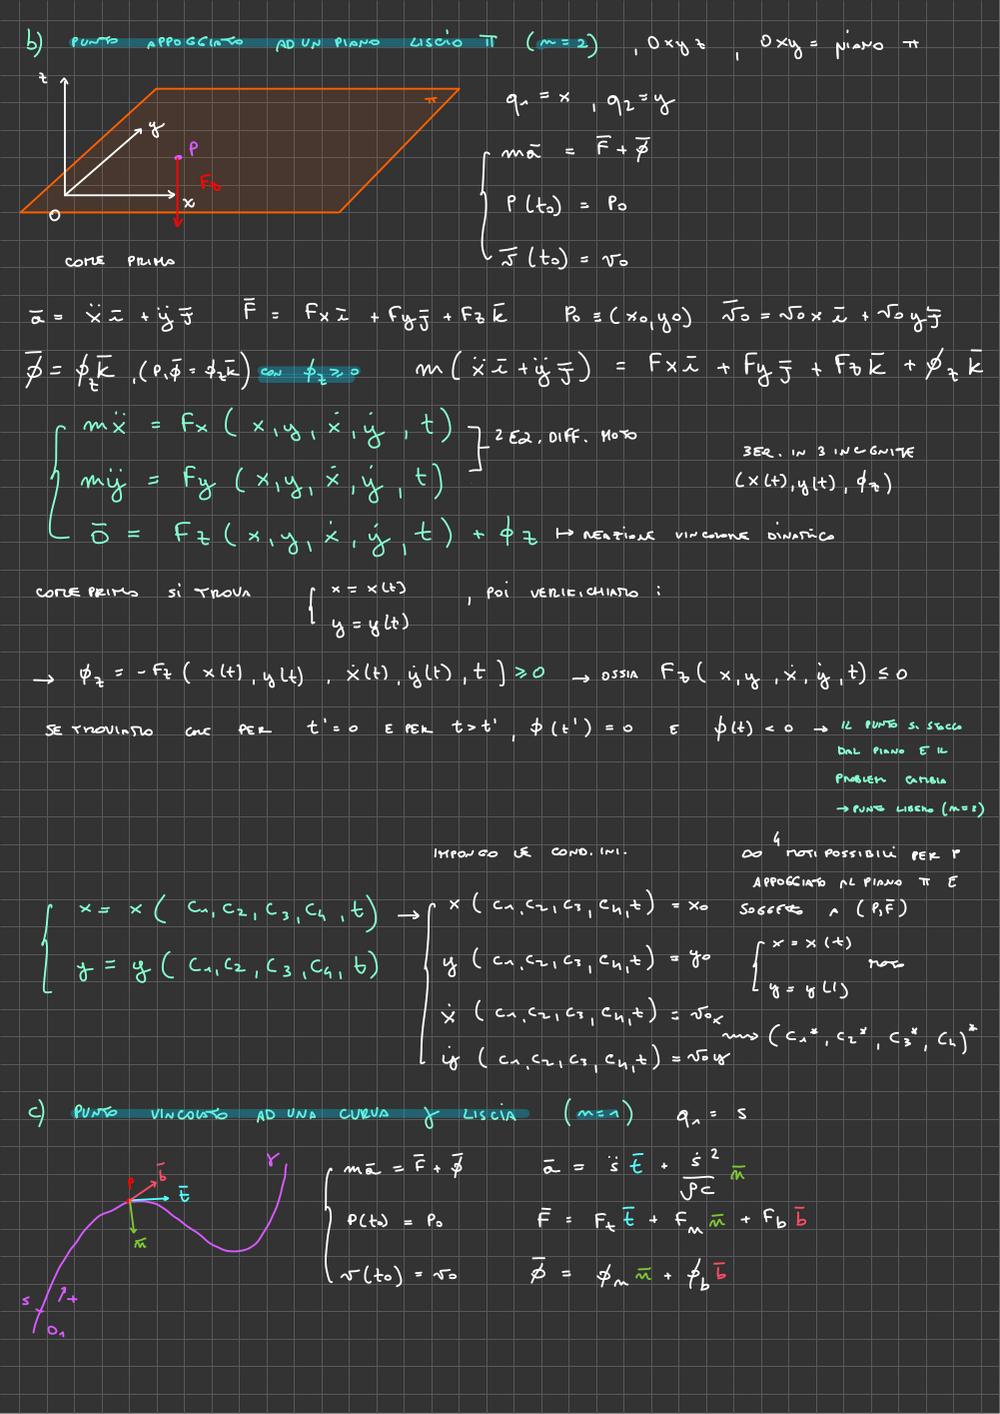 b) PUNTO APPOGGIATO AD UN PIANO LISCIO π (m=2) , Oxyz , Oxy = piano π
z
y
x
O
P
F_z
π
q₁ = x , q₂ = y
mā = F̄ + φ̄
P(t₀) = P₀
v̄(t₀) = v₀
COME PRIMA
ā = ẍ ī + ÿ j̄   F̄ = Fx ī + Fy j̄ + Fz k̄   P₀ ≡ (x₀,y₀)   v̄₀ = v₀x ī + v₀y j̄
φ̄ = φ_z k̄ , (P, φ̄ = φ_z k̄) CON φ_z ≥ 0   m(ẍ ī + ÿ j̄) = Fx ī + Fy j̄ + Fz k̄ + φ_z k̄
mẍ = Fx (x,y,ẋ,ẏ,t)
mÿ = Fy (x,y,ẋ,ẏ,t)
2 EQ. DIFF. MOTO
0̄ = Fz (x,y,ẋ,ẏ,t) + φ_z ↦ REAZIONE VINCOLARE DINAMICA
3EQ. IN 3 INCOGNITE
(x(t), y(t), φ_z)
COME PRIMA SI TROVA { x = x(t)
y = y(t)
, POI VERIFICHIAMO :
→ φ_z = -Fz (x(t), y(t) , ẋ(t), ẏ(t), t] ≥ 0 → OSSIA Fz (x,y,ẋ,ẏ,t) ≤ 0
SE TROVIAMO CHE PER t' = 0 E PER t>t' , φ(t') = 0 E φ(t) < 0 → IL PUNTO SI STACCA
DAL PIANO E IL
PROBLEM CAMBIA
→ PUNTO LIBERO (m=3)
IMPONGO LE COND. INI.
∞⁴ MOTI POSSIBILI PER P
APPOGGIATO AL PIANO π E
SOGGETTO A (P,F̄)
x = x (c₁,c₂,c₃,c₄,t)
y = y (c₁,c₂,c₃,c₄,t)
→ x (c₁,c₂,c₃,c₄,t) = x₀
y (c₁,c₂,c₃,c₄,t) = y₀
ẋ (c₁,c₂,c₃,c₄,t) = v₀x
ẏ (c₁,c₂,c₃,c₄,t) = v₀y
x = x(t)
y = y(t)
MOTO
⟿ (c₁*, c₂*, c₃*, c₄)*
c) PUNTO VINCOLATO AD UNA CURVA γ LISCIA (m=1) q₁ = s
P
b̄
t̄
n̄
γ
s
+
O₁
mā = F̄ + φ̄
P(t₀) = P₀
v(t₀) = v₀
ā = s̈ t̄ + ṡ²/ρc n̄
F̄ = F_t t̄ + F_n n̄ + F_b b̄
φ̄ = φ_n n̄ + φ_b b̄